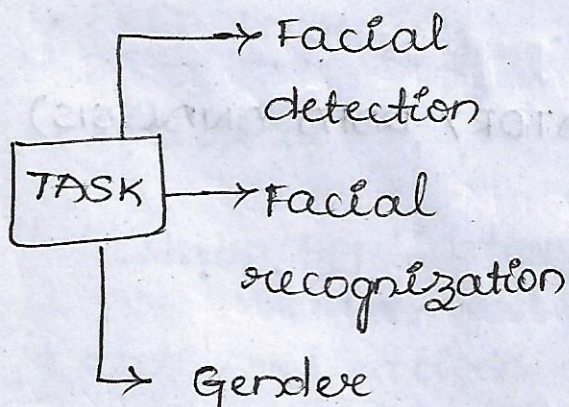 Facial
detection
TASK
Facial
recognization
Gender